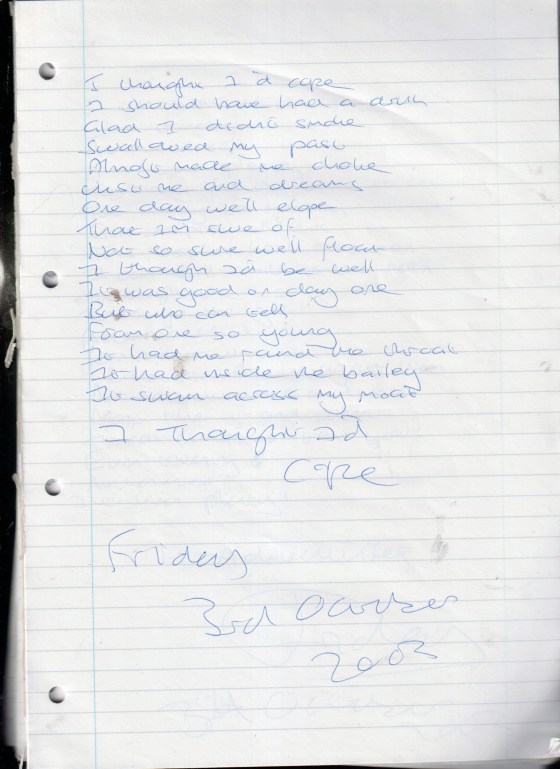 I thought I'd cope
I should have had a drink
Glad I didn't smoke
Swallowed my past
Almost made me choke
Just me and dreams
One day we'll elope
That I'm sure of
Not so sure we'll float
I though I'd be well
It was good on day one
But who can tell
From one so young
It had me round the throat
It had inside the bailey
It swam across my moat
I Thought I'd
Cope
Friday
3rd October
2003